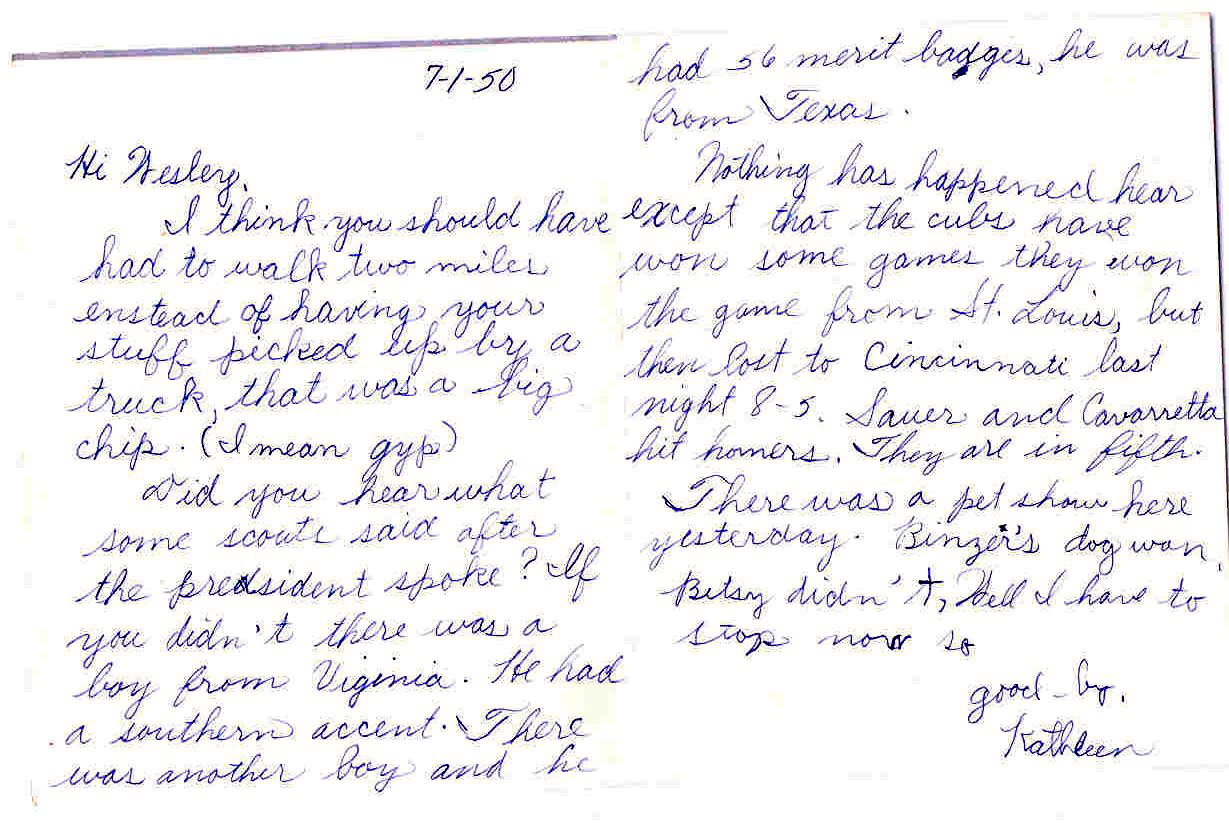 7-1-50
Hi Wesley,
I think you should have
had to walk two miles
enstead of having your
stuff picked up by a
truck, that was a big
chip. (I mean gyp)
Did you hear what
some scouts said after
the predsident spoke? If
you didn't there was a
boy from Viginia. He had
a southern accent. There
was another boy and he
had 56 merit badges, he was
from Texas.
Nothing has happened hear
except that the cubs have
won some games they won
the game from St. Louis, but
then lost to Cincinnati last
night 8-5. Sauer and Cavarretta
hit homers. They are in fifth.
There was a pet show here
yesterday. Binzer's dog won,
Betsy didn't, Well I have to
stop now so
good-by.
Kathleen